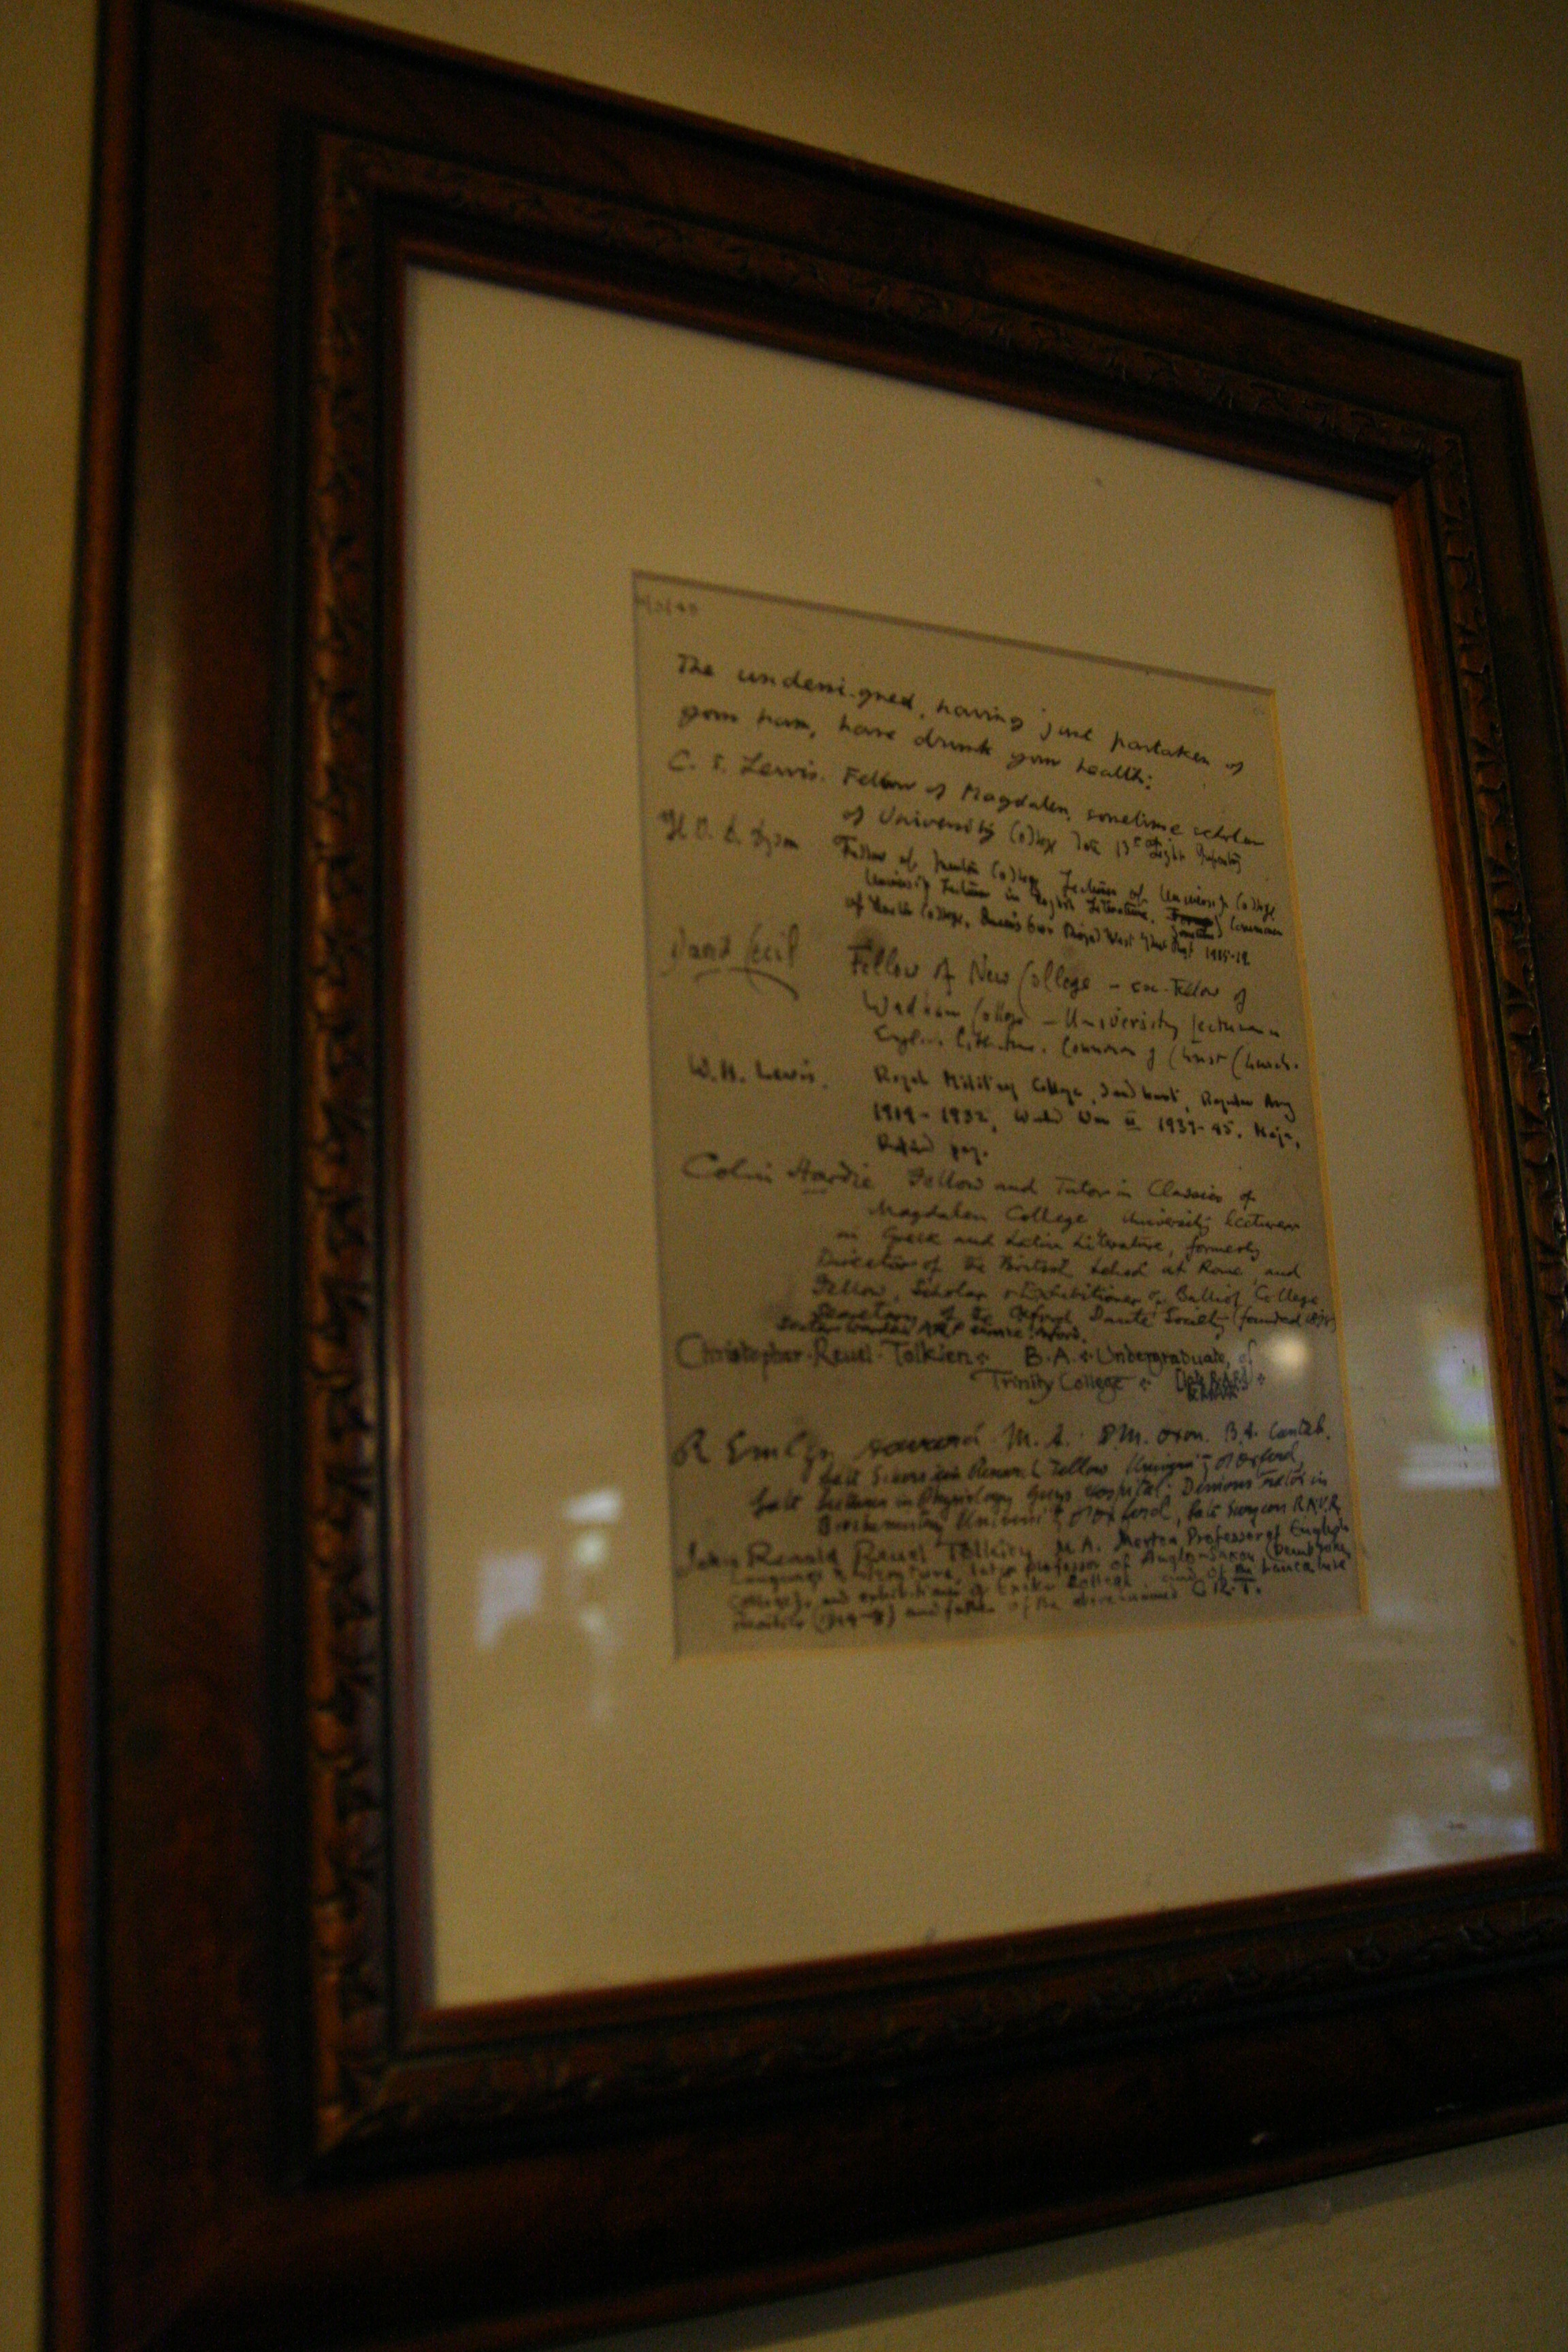 The undersigned, having just partaken of
your ham, have drunk your health:
C. S. Lewis. Fellow of Magdalen, sometime scholar
of University College
H. V. D. Dyson Fellow of Merton College, Lecturer of University College
University Lecturer in English Literature,
of College, Royal West Kent Regt 1915-19.
David Cecil Fellow of New College – ex-Fellow of
Wadham College – University lecturer in
English Literature. Commoner of Christ Church.
W.H. Lewis. Royal Military College, Sandhurst, Regular Army
1914-1932, World War II 1939-45. Major,
Retired pay.
Colin Hardie Fellow and Tutor in Classics of
Magdalen College, University lecturer
in Greek and Latin Literature, formerly
Director of the British School at Rome, and
Fellow, Scholar & Exhibitioner of Balliol College
Secretary of the Oxford Dante Society (founded
Christopher Reuel Tolkien B.A. Undergraduate, of
Trinity College
R Emlyn Havard M.A. D.M. Oxon. B.A. Cantab.
Research Fellow University of Oxford,
Late Lecturer in Physiology Guys Hospital; Demonstrator in
Biochemistry University of Oxford, late Surgeon R.N.V.R.
John Ronald Reuel Tolkien M.A. Merton Professor of English
Language & Literature, late professor of Anglo-Saxon (Pembroke
College), and exhibitioner of Exeter College, and of the Lancashire
and father of the above-named C.R.T.